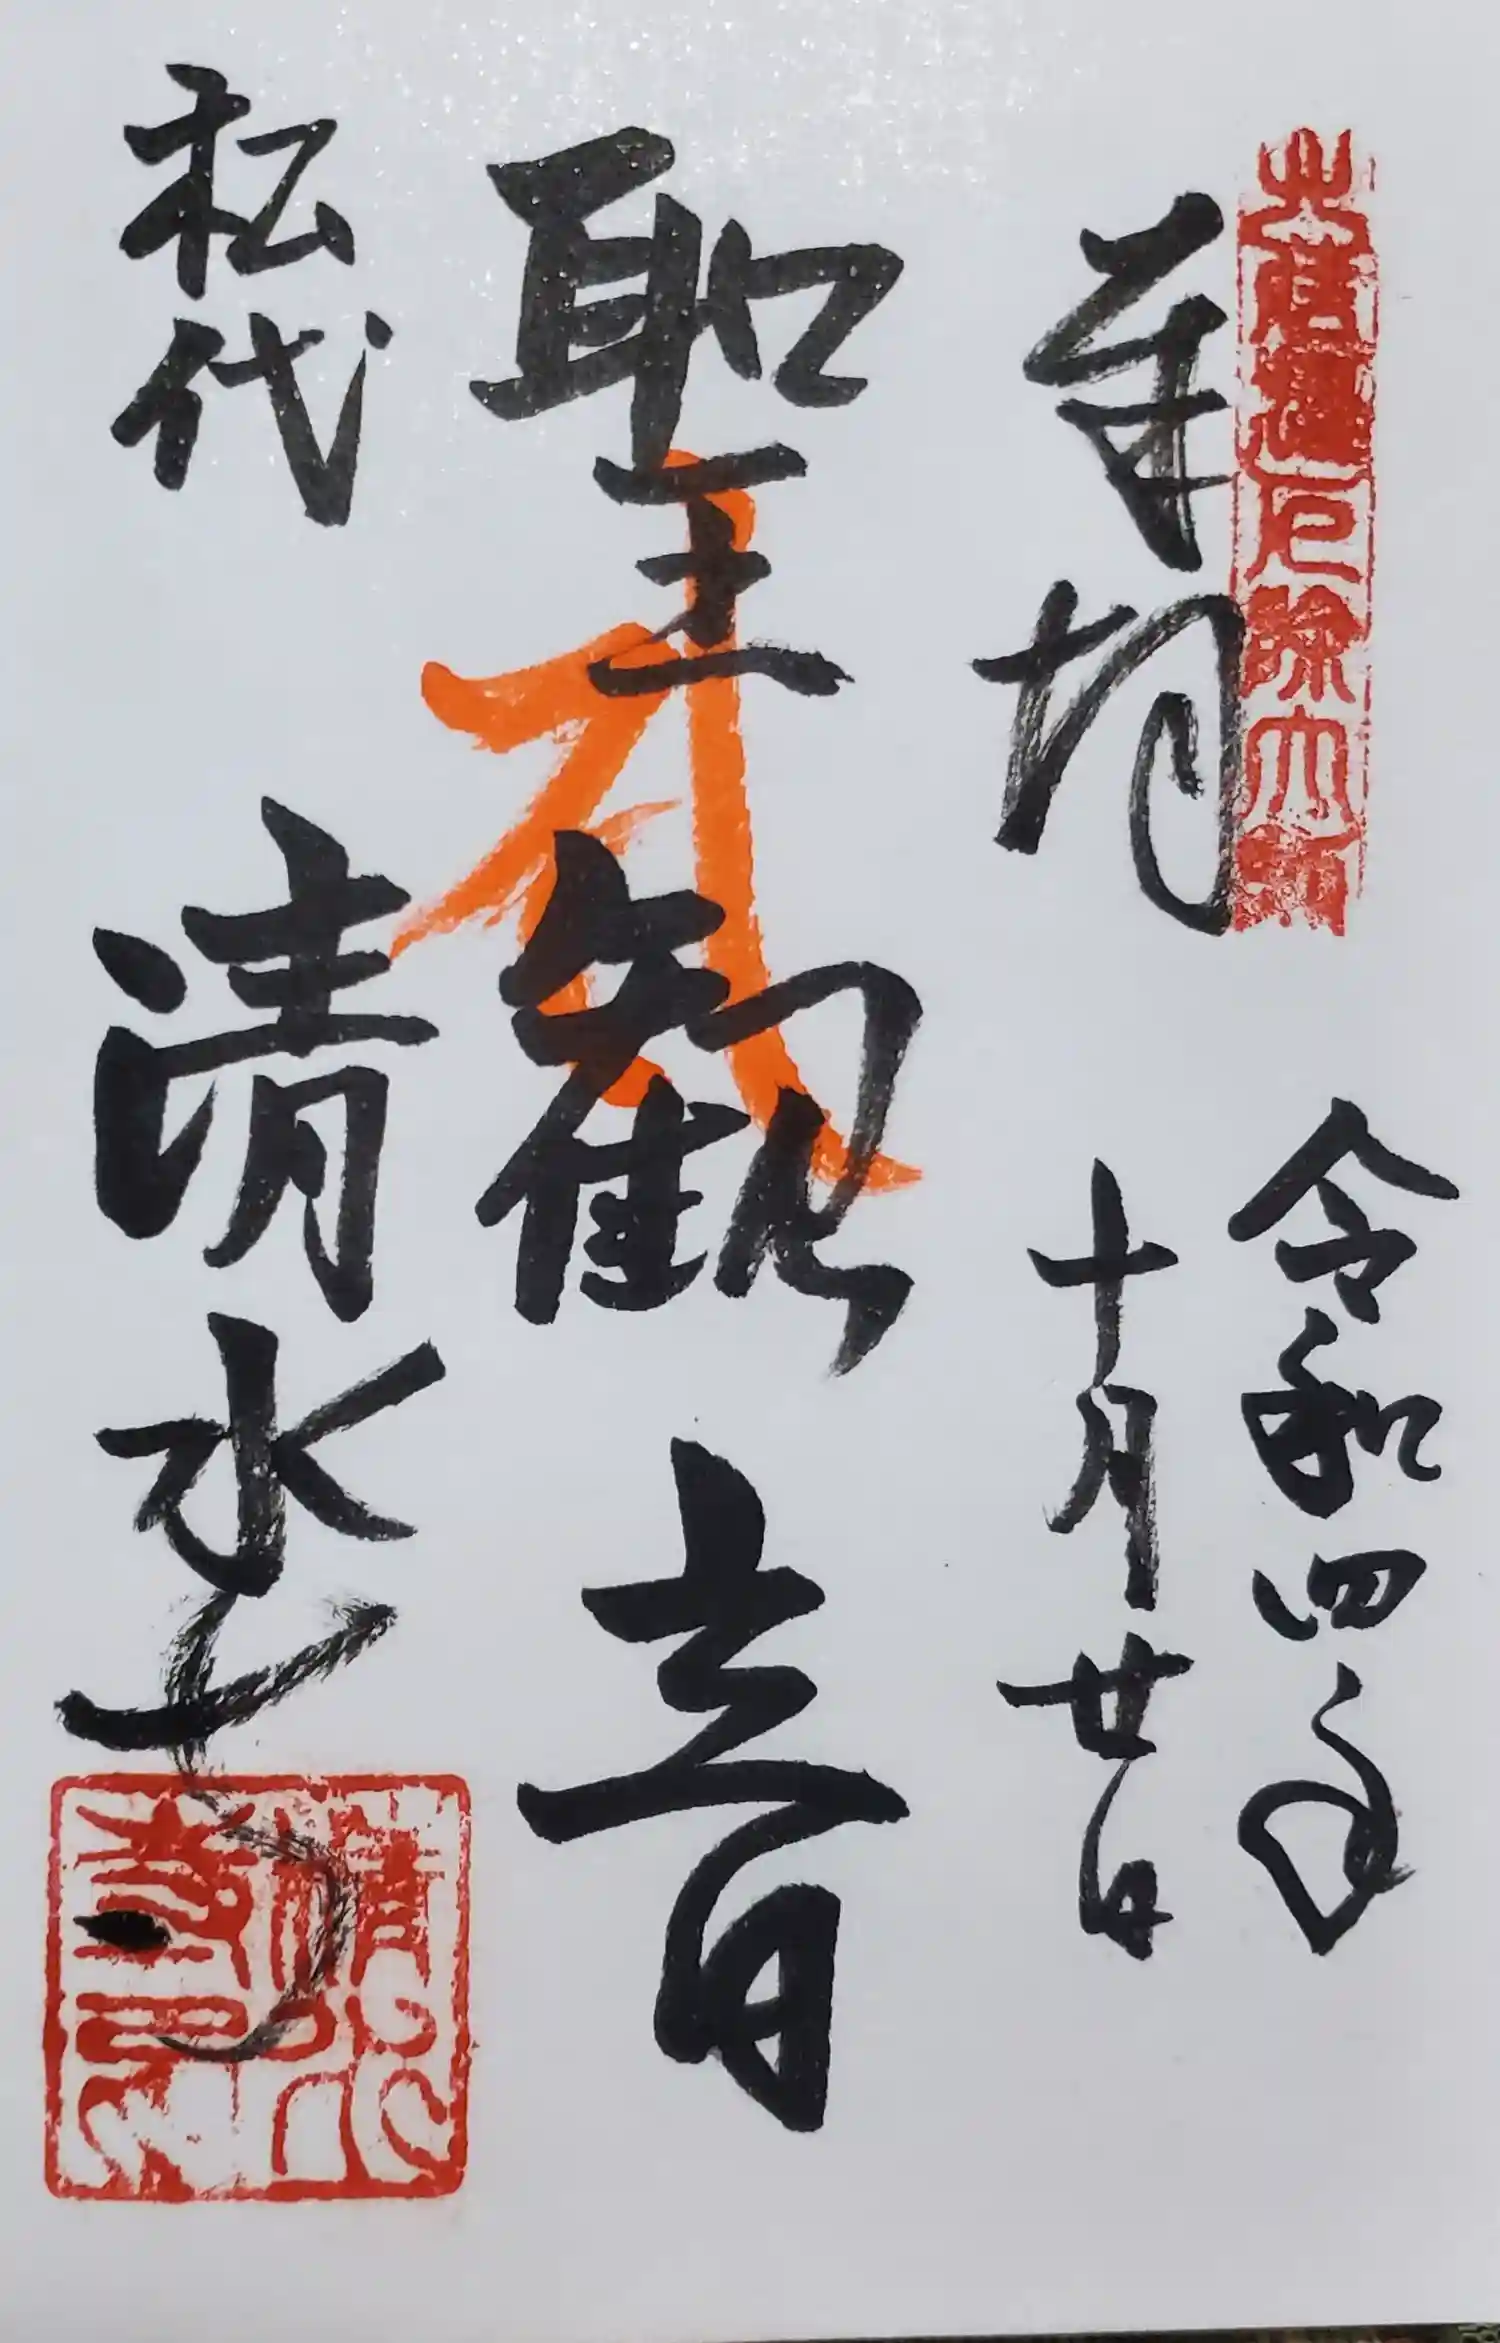 奉拝
令和四年
十月廿日
聖観音
松代 清水寺